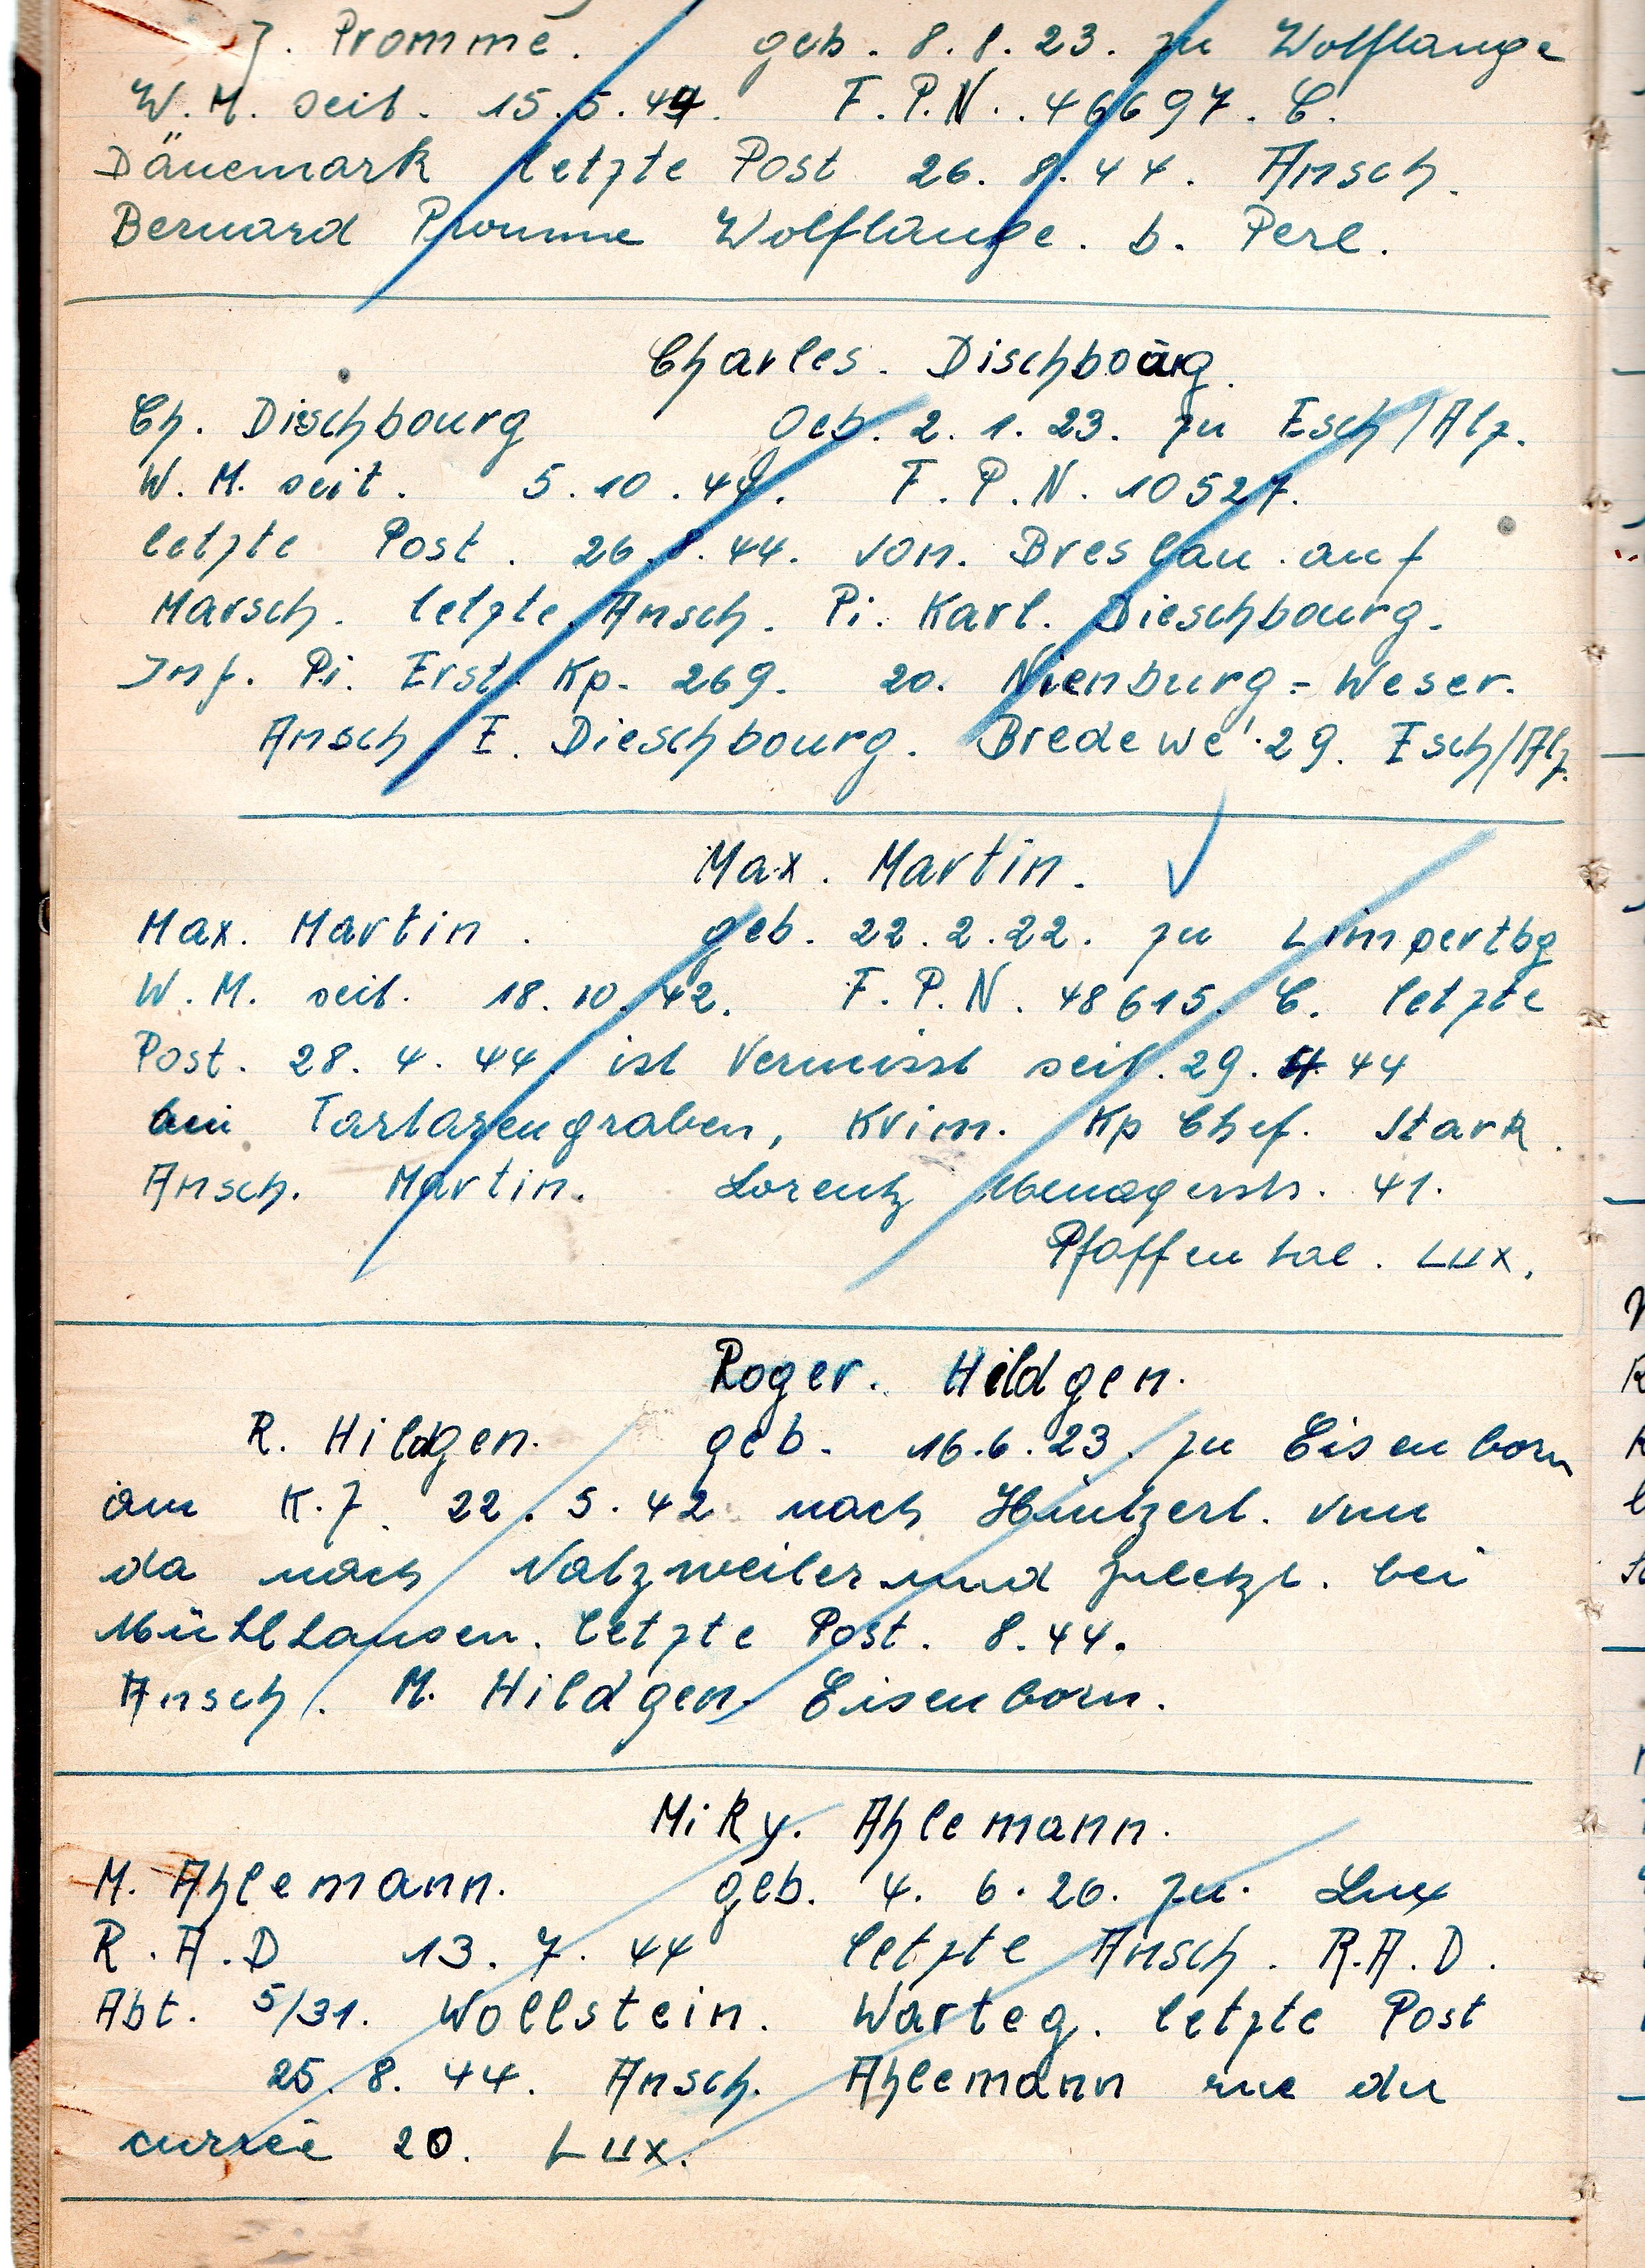 J. Promme. geb. 8.8.23. zu Wolflange
W.M. seit. 15.5.44. F.P.N. 46697.C.
Dänemark letzte Post 26.8.44. Ansch.
Bernard Promme Wolflange. b. Perl.
Charles. Dischbourg.
Ch. Dischbourg Geb. 2.1.23. zu Esch/Alz.
W.M. seit. 5.10.44. F.P.N. 10527.
letzte Post. 26.8.44. von. Breslau. auf
Marsch. letzte Ansch. Pi. Karl. Dieschbourg.
Inf. Pi. Erst. Kp. 269. 20. Nienburg-Weser.
Ansch E. Dieschbourg. Bredewé. 29. Esch/Alz.
Max. Martin.
Max. Martin. geb. 22.2.22. zu Limpertbg
W.M. seit. 18.10.42. F.P.N. 48615.C. letzte
Post. 28.4.44. ist Vermisst seit. 29. 4 44
bei Tartarengraben, Krim. Kp Chef. Stark.
Ansch. Martin. Lorentz 41.
Pfaffenthal. Lux.
Roger. Hildgen.
R. Hildgen. geb. 16.6.23. zu Eisenborn
am K.Z. 22.5.42 nach Hintzert. von
da nach Natzweiler und zuletzt. bei
Mühlhausen. letzte Post. 8.44.
Ansch. M. Hildgen Eisenborn.
Miky. Ahlemann.
M. Ahlemann. geb. 4.6.26. zu. Lux
R.A.D 13.7.44 letzte Ansch. R.A.D.
Abt. 5/31. Wollstein. Warteg. letzte Post
25.8.44. Ansch. Ahlemann rue du
curée 20. Lux.